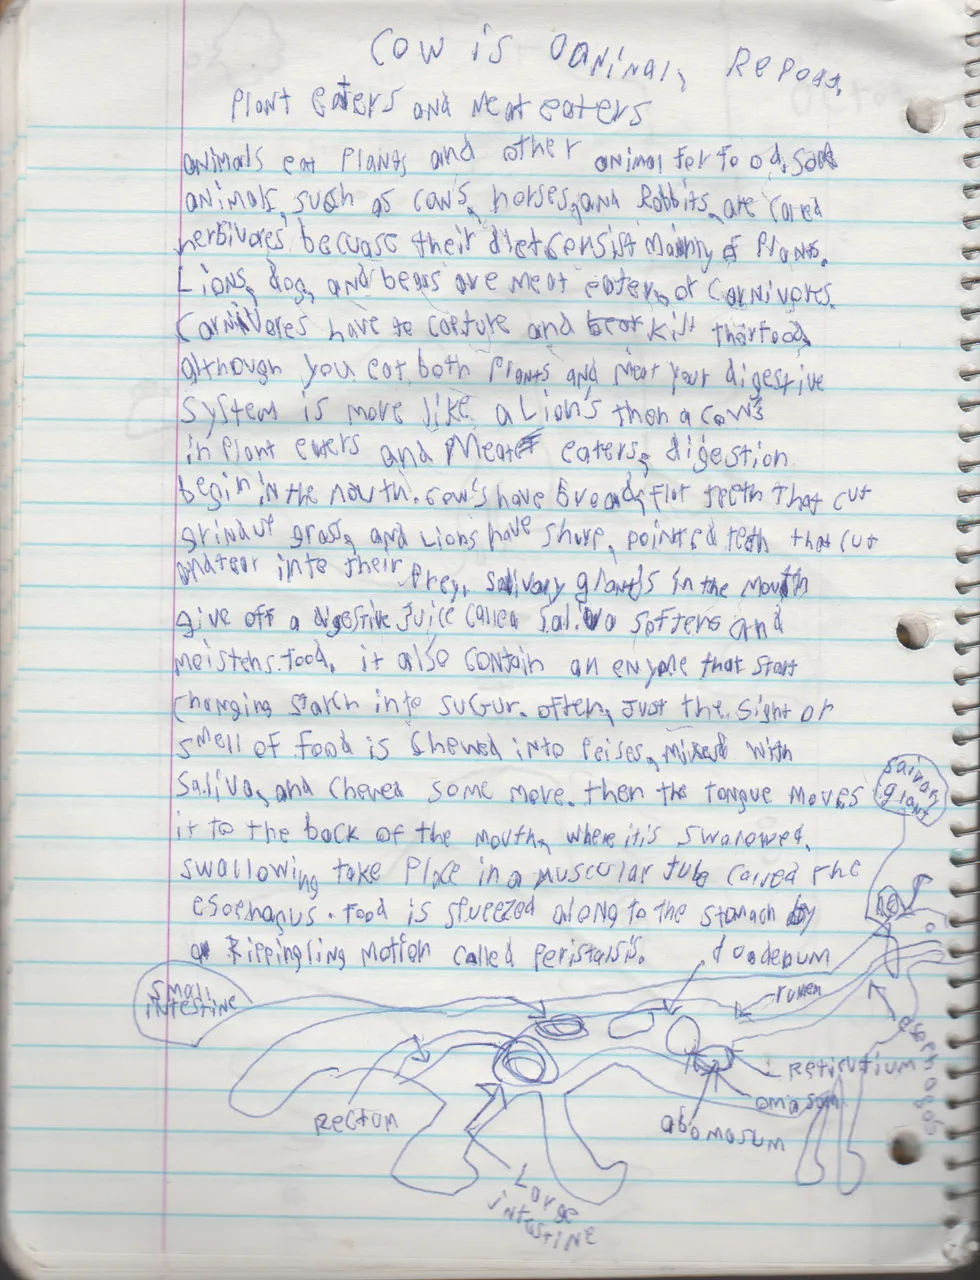 Cow is Oaninal, Report,
Plant eaters and Meat eaters
animals eat Plants and other animal for food,
animals, such as cow's, horses, and Robbits, are
herbivores, becuase their diet consist mainly of Plants.
Lions, dog, and bears are meat eater, or Carnivores.
Carnivores have to capture and kill
although you eat both Plants and Meat your digestive
System is move like a Lion's then a cow's
in Plant eaters and Meat eaters, digestion
begin in the mouth. cow's have broad, flat teeth that cut
grass, and Lions have sharp, pointed teeth that cut
and tear into their Prey, salivary glands in the mouth
give off a digestive Juice called Saliva softens and
moistens food, it also contain an enyme that start
changing starch into sugur. often, Just the sight or
smell of food is Chewed into Peises, mixed with
Saliva, and Chewed some move. then the tongue moves
it to the back of the mouth, where it is swalowed,
swallowing take Place in a muscular tube called the
esophagus. food is squeezed along to the stomach by
a Rippingling Motion called Peristalsis.
doodenum
small
intestine
rumen
Reticutium
omasum
abomosum
Rectum
Large
intestine